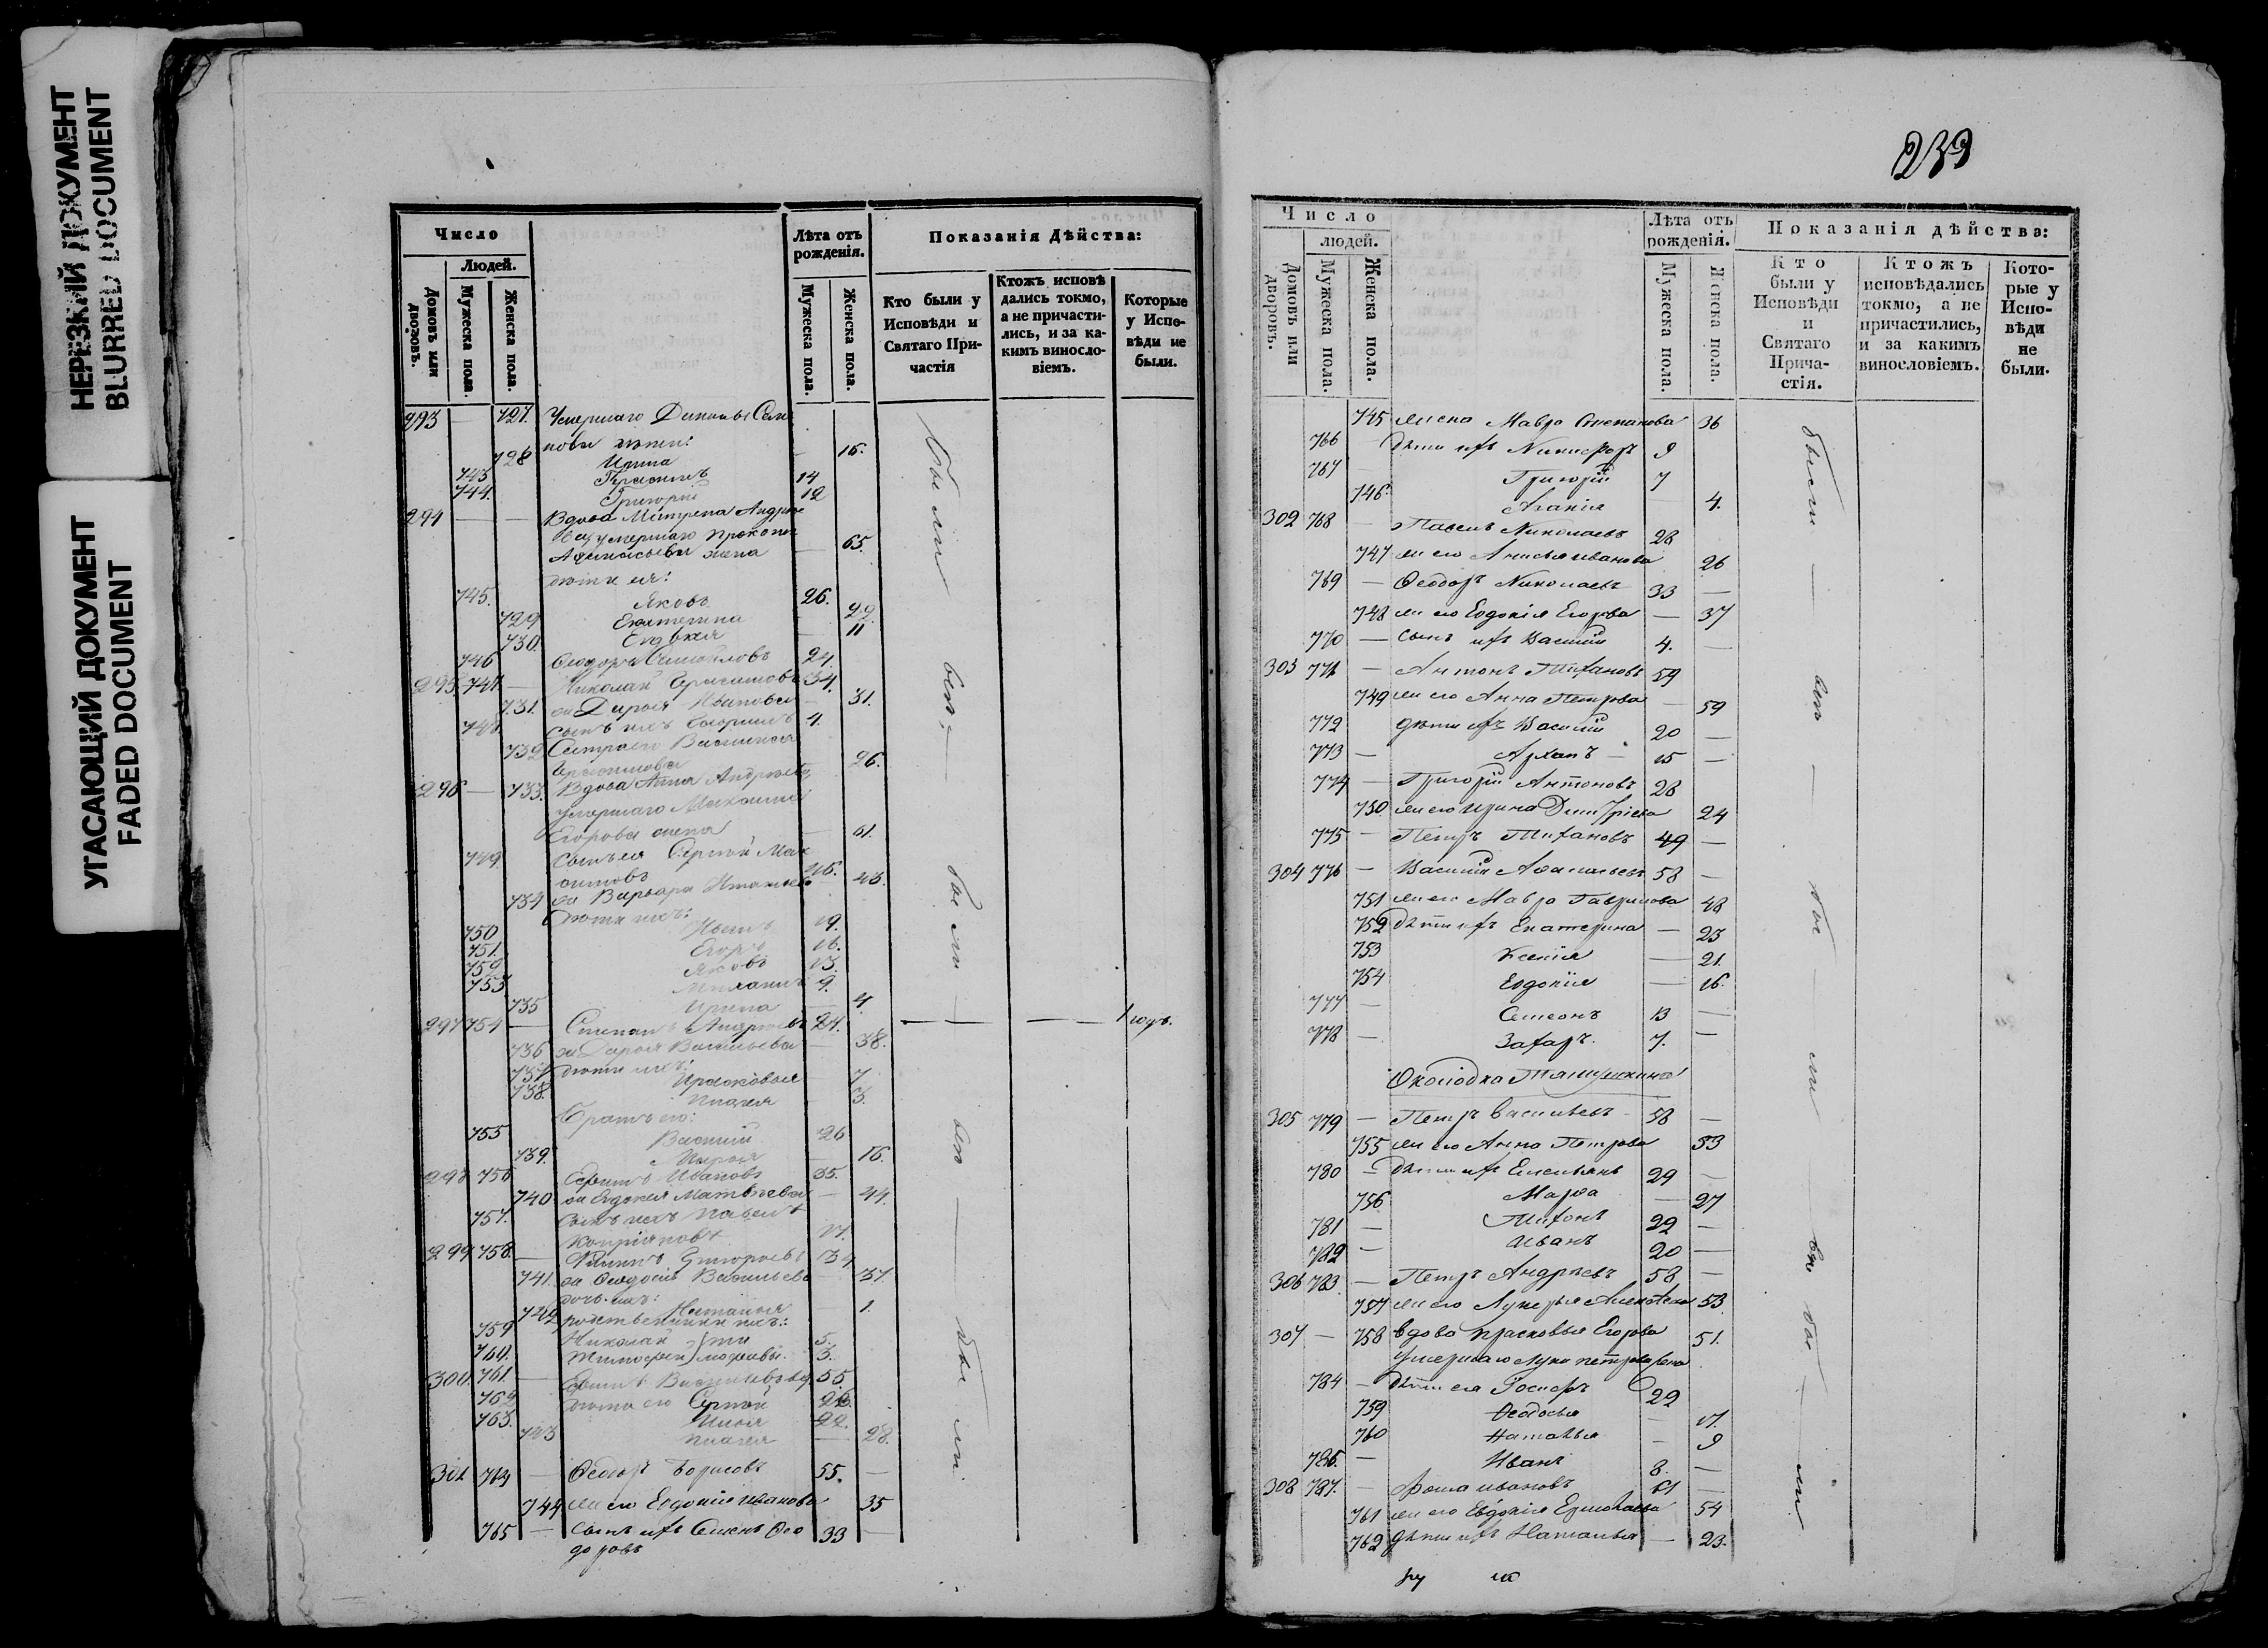 НЕРЕЗКИЙ ДОКУМЕНТ
BLURRED DOCUMENT
УГАСАЮЩИЙ ДОКУМЕНТ
FADED DOCUMENT
Число
Людей.
Домовъ или дворовъ.
Мужеска пола.
Женска пола.
Лѣта отъ рожденія.
Мужеска пола.
Женска пола.
Показанія Дѣйства:
Кто были у Исповѣди и Святаго Причастія
Ктожъ исповѣдались токмо, а не причастились, и за какимъ винословіемъ.
Которые у Исповѣди не были.
293 — 727. Умершаго
дѣти:
728 Ирина — 16.
743 Герасимъ 14
744. Григорій 12
294 — — Вдова Матрена Андрѣе
ва умершаго Прокопія
Афанасьева жена — 65.
дѣти ея:
745. Яковъ 26.
729 Екатерина — 22.
730. Евдокія — 11
746 Ѳеодоръ Самойловъ 24.
295 747. — Николай Герасимовъ 34.
731. жена Дарья Иванова — 31.
748 сынъ ихъ 4.
732 Сестра его Василиса
Герасимова 26.
296 — 733. Вдова Анна Андрѣева
умершаго Максима
Егорова жена — 61.
749 Сынъ ея Сергѣй Мак
симовъ 46.
734 жена Варвара — 43.
дѣти ихъ:
750 Иванъ 19.
751. Егоръ 16.
752 Яковъ 13.
753 Михаилъ 9.
735 Ирина — 4.
297 754 — Степанъ Андреевъ 24. — — — 1 годъ.
736 жена Дарья Васильева — 38.
737 дѣти ихъ: Прасковья 7
738. Пелагея 3.
Братъ его:
755 Василій 26
739. Марья — 16.
298 756 Ивановъ 35.
740 жена Евдокія Матвѣева — 44.
757. сынъ ихъ Павелъ
Кипріановъ 17.
299 758. — Филипъ Григорьевъ 34
741. жена Ѳеодосія Васильева — 37.
дочь ихъ:
742 Наталья — 1.
родственники ихъ:
759 Николай 5.
760. Тимофей 3.
300. 761. — Васильевъ вд. 55.
762 дѣти его Сергѣй 26.
763. Илья 22.
743 Пелагея — 28.
301 764 — Ѳеодоръ Борисовъ 55. —
744 жена его Евдокія Иванова 35
765 — сынъ ихъ Семенъ Ѳео
доровъ 33 —
были
всѣ
были
всѣ
были
239
Число
людей.
Домовъ или дворовъ.
Мужеска пола.
Женска пола.
Лѣта отъ рожденія.
Мужеска пола.
Женска пола.
Показанія дѣйства:
Кто были у Исповѣди и Святаго Причастія.
Ктожъ исповѣдались токмо, а не причастились, и за какимъ винословіемъ.
Которые у Исповѣди не были.
745 жена Мавра Степанова 36
766 дѣти ихъ Никифоръ 9
767 Григорій 7
746. Агапія 4.
302 768 — Павелъ Николаевъ 28
747 жена его Анисья Иванова 26
769 — Ѳеодоръ Николаевъ 33 —
748 жена его Евдокія Егорова — 37
770 — сынъ ихъ Василій 4. —
303 771 — Антонъ Тихановъ 59
749 жена его Анна Петрова — 59
772 дѣти ихъ Василій 20 —
773 — Архипъ — 15 —
774 — Григорій Антоновъ 28
750. жена его Ирина Димитріева 24
775 — Петръ Тихановъ 49 —
304 776 — Василій Афанасьевъ 58 —
751 жена его Мавра Гаврилова 48
752 дѣти ихъ Екатерина — 23
753 Ксенія — 21.
754 Евдокія — 16.
777 — Семеонъ 13 —
778 — Захаръ. 7. —
305 779 — Петръ Васильевъ 58 —
755 жена его Анна Петрова 53
780 — дѣти ихъ Емельянъ 29 —
756 Марѳа — 27
781 — Тихонъ 22 —
782 — Иванъ 20 —
306 783. — Петръ Андреевъ 58 —
757 жена его Лукерья Алексѣева 53.
307 — 758 вдова Прасковья Егорова 51.
умершаго Луки Петрова жена
784 — дѣти ея Іосифъ 22
759 Ѳеодосья — 17.
760 Наталья — 9
786. — Иванъ 8. —
308 787. — Фома Ивановъ 61 —
761 жена его Евдокія Ермолаева 54
762 дѣти ихъ Наталья — 23.
были
всѣ
бы
ли
всѣ
бы
ли